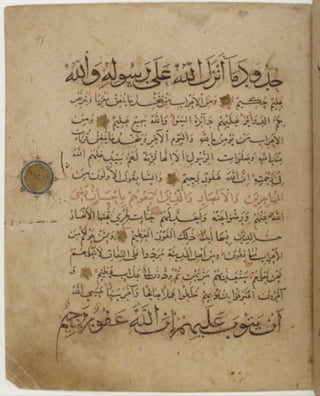 حدود ما أنزل الله على رسوله والله
عليم حكيم ومن الأعراب من يتخذ ما ينفق مغرما ويتربص
بكم الدوائر عليهم دائرة السوء والله سميع عليم ومن
الأعراب من يؤمن بالله واليوم الآخر ويتخذ ما ينفق قربات
عند الله وصلوات الرسول ألا إنها قربة لهم سيدخلهم الله
في رحمته إن الله غفور رحيم والسابقون الأولون من
المهاجرين والأنصار والذين اتبعوهم بإحسان رضي
الله عنهم ورضوا عنه وأعد لهم جنات تجري تحتها الأنهار
خالدين فيها أبدا ذلك الفوز العظيم وممن حولكم من
الأعراب منافقون ومن أهل المدينة مردوا على النفاق لا تعلمهم
نحن نعلمهم سنعذبهم مرتين ثم يردون إلى عذاب عظيم و
آخرون اعترفوا بذنوبهم خلطوا عملا صالحا وآخر سيئا عسى الله
أن يتوب عليهم إن الله غفور رحيم